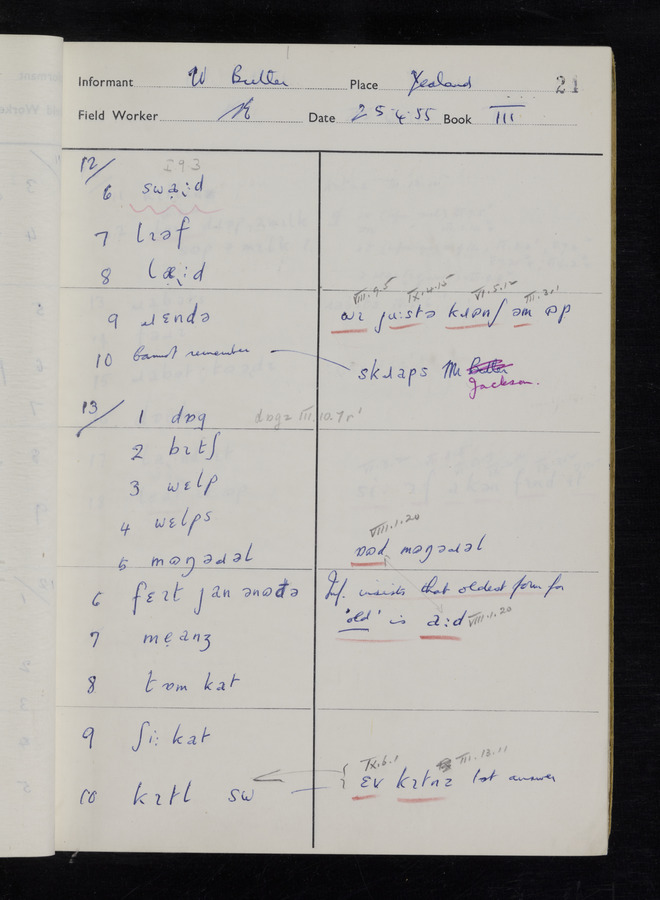 Informant W Butler Place Yealand 21
Field Worker Date 25·4·55 Book III
12/ I 9 3
6 swa̤ːd
7 lɪəf
8 læːd
9 ɹɛndə
VIII.9.5 IX.4.15 VI.5.12 III.2.1
juːstə kɹɒnʃ əm ɒp
10 Cannot remember
skɹaps Mr Butler
Jackson.
13/ 1 dɒg dɒgz III.10.7 r'
2 bɪtʃ
3 wɛlp
4 wɛlps
VIII.1.20
5 mɒŋgɹəl
6 fɛɪt jan ənɒðə
Inf. insists that oldest form for
'old' is aːd VIII.1.20
7 meanʒ
8 tɒm kat
9 ʃiː kat
IX.6.1 III.13.11
10 kɪtl sw
ɛv kɪtnz 1st answer